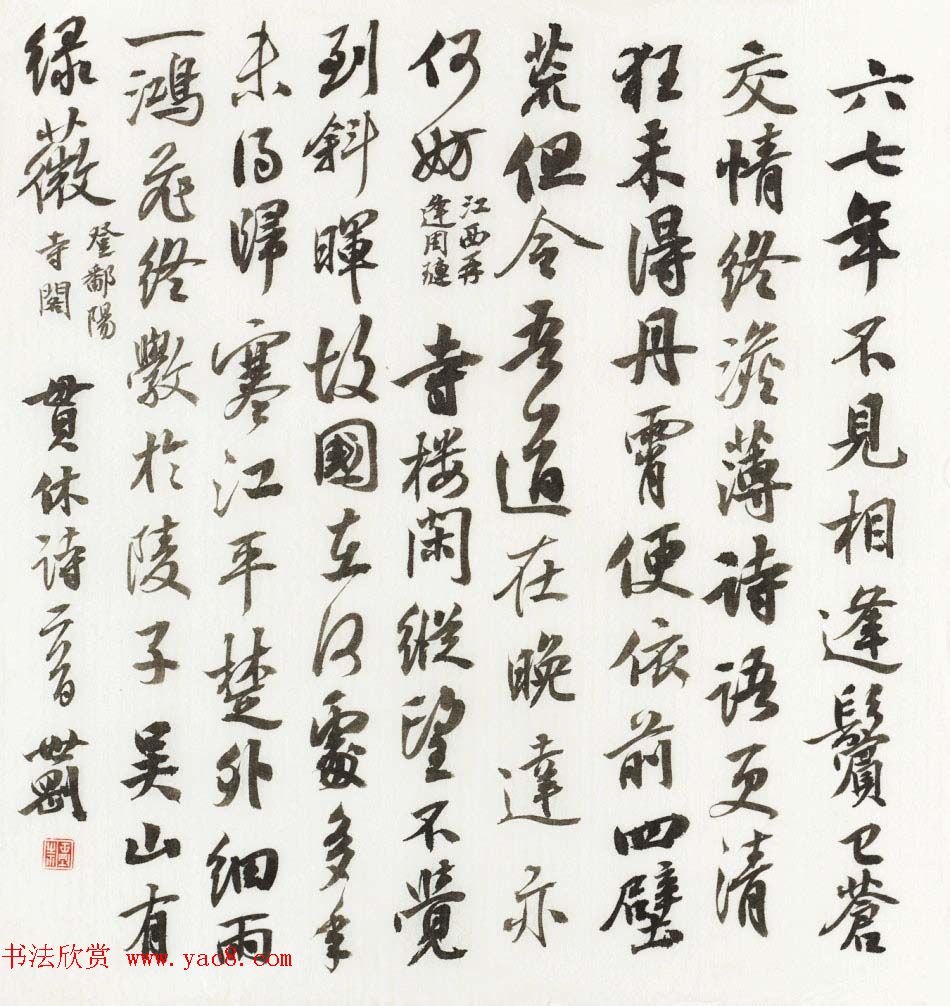 六七年不見相逢鬢已蒼
交情終澹薄詩語更清
狂未得丹霄便依前四壁
荒但令吾道在晚達亦
何妨
江西再
逢周璉
寺楼閑縱望不覺
到斜暉故國在何處多年
未得歸寒江平楚外細雨
一鴻飛終斆於陵子吴山有
緑薇
登鄱陽
寺閣
貫休詩二首 世剛
书法欣赏 www.yac8.com